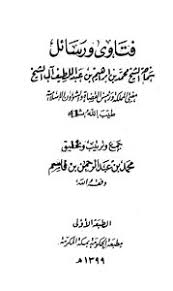 فتاوى ورسائل
سماحة الشيخ محمد بن ابراهيم بن عبد اللطيف آل الشيخ
مفتي المملكة ورئيس القضاة والشؤون الإسلامية
طيب الله ثراه
جمع وترتيب وتحقيق
محمد بن عبد الرحمن بن قاسم
وفقه الله
الطبعة الأولى
مطبعة الحكومة بمكة المكرمة
١٣٩٩ هـ